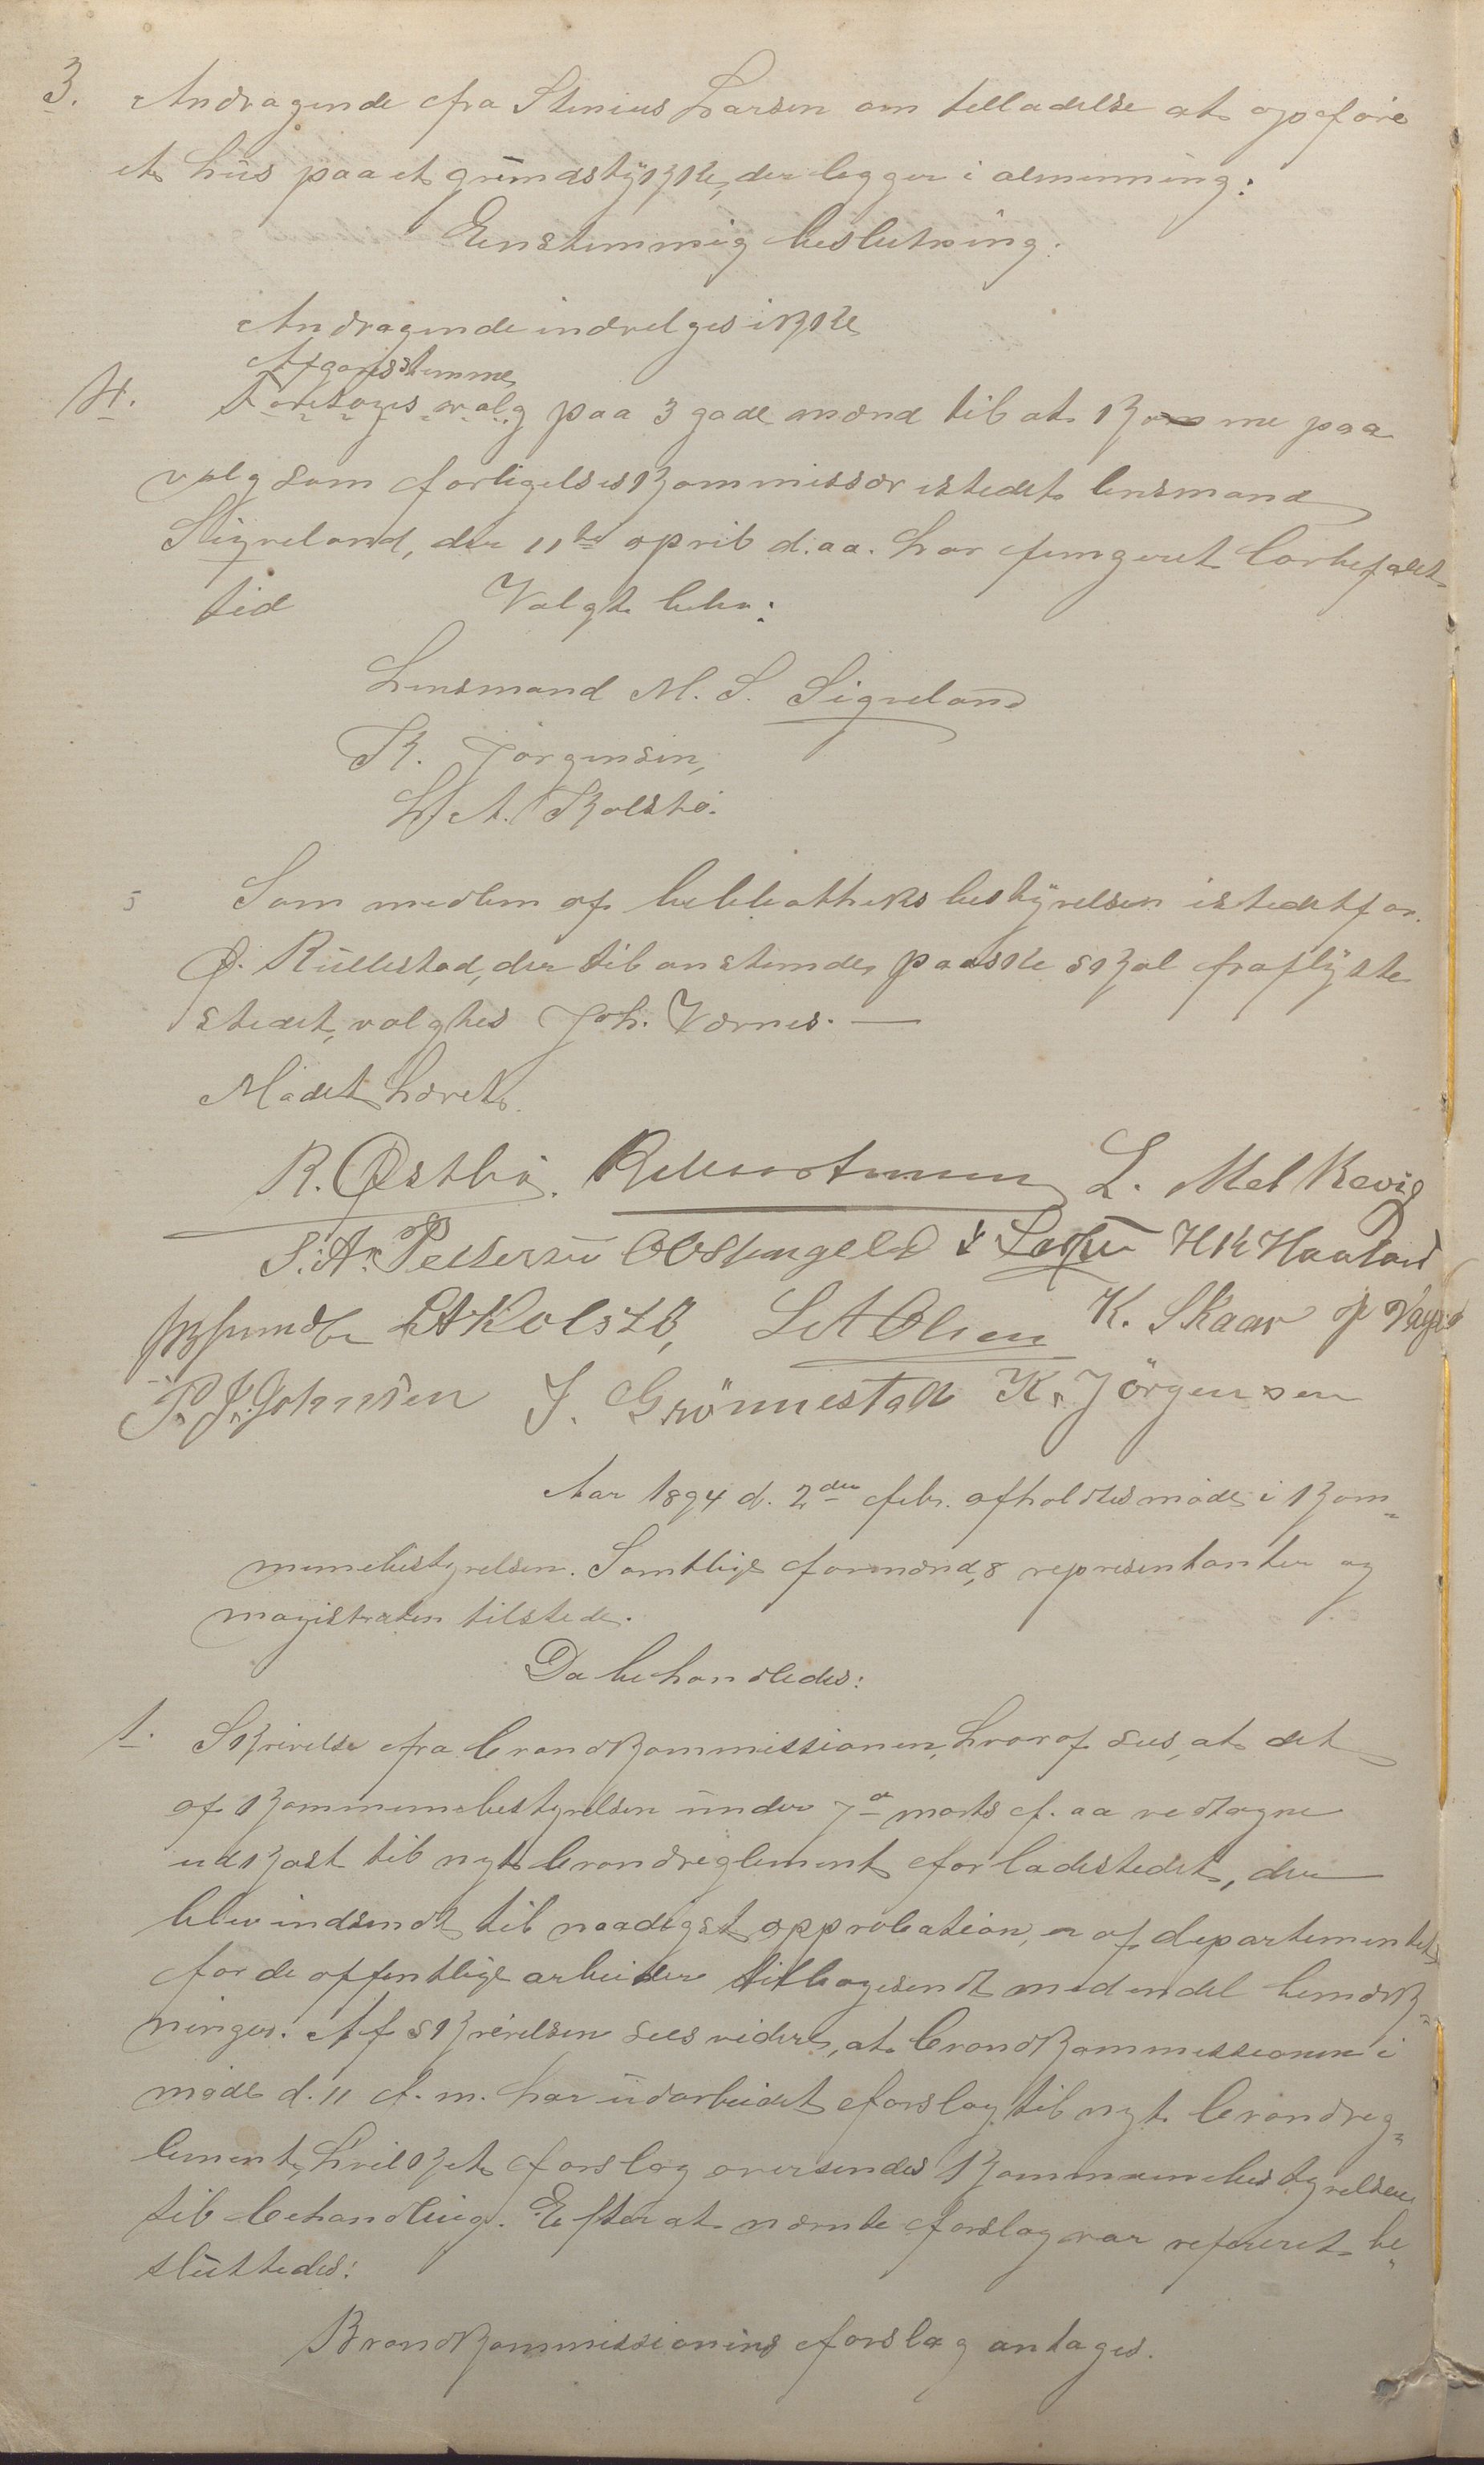 3. Andragende fra Stenius Larsen om telladelse at opføre
et hus paa et grundstykke, der legger i almenning:
Eenstemmig beslutning.
Andragende indvelges ikke
Afgavs stemme
4. Foretoges valg paa 3 gode mænd til at komme paa
valg som forligelseskommissær istedet lensmand
Sigveland, der 11te april d. aa. har fungeret lovbefalet
tid Valgt blev:
Lensmand M. S. Sigveland
K. Jørgensen,
L. A. Kolstø.
5 Som medlem af bebliotheksbestyrelsen istedetfor
Ø. Rullestad, der til anstundende paaske skal fraflytte
stedet, valgtes Joh. Værnes. —
Mødet hævet.
R. Østbø. L. Melkevig
S. A. Pettersen O O Stangeland HK Haaland
LAKolstø, L A Olsen K. Skaar
P. J. Johnsen J. Grönnestad K. Jörgensen
Aar 1894 d. 2den febr. afholdtes møde i kom-
munebestyrelsen. Samtlige formænd, 8 representanter og
magistraten tilstede.
Da behandledes:
1. Skrivelse fra brandkommissionen, hvoraf sees, at det
af kommunebestyrelsen under 7de marts f. aa vedtagne
udkast til nyt brandreglement for ladestedet, der
blev indsendt til naadigst approbation, er af departementet
for de offentlige arbeider tilbagesendt med endel bemærk-
ninger. Af skrivelsen sees videre, at brandkommissionen i
møde d. 11 f. m. har udarbeidet forslag til nyt brandreg-
lement, hvilket forslag oversendes kommunebestyrelsen
til behandling. Efter at nævnte forslag var refereret be-
sluttedes:
Brandkommissionens forslag antages.